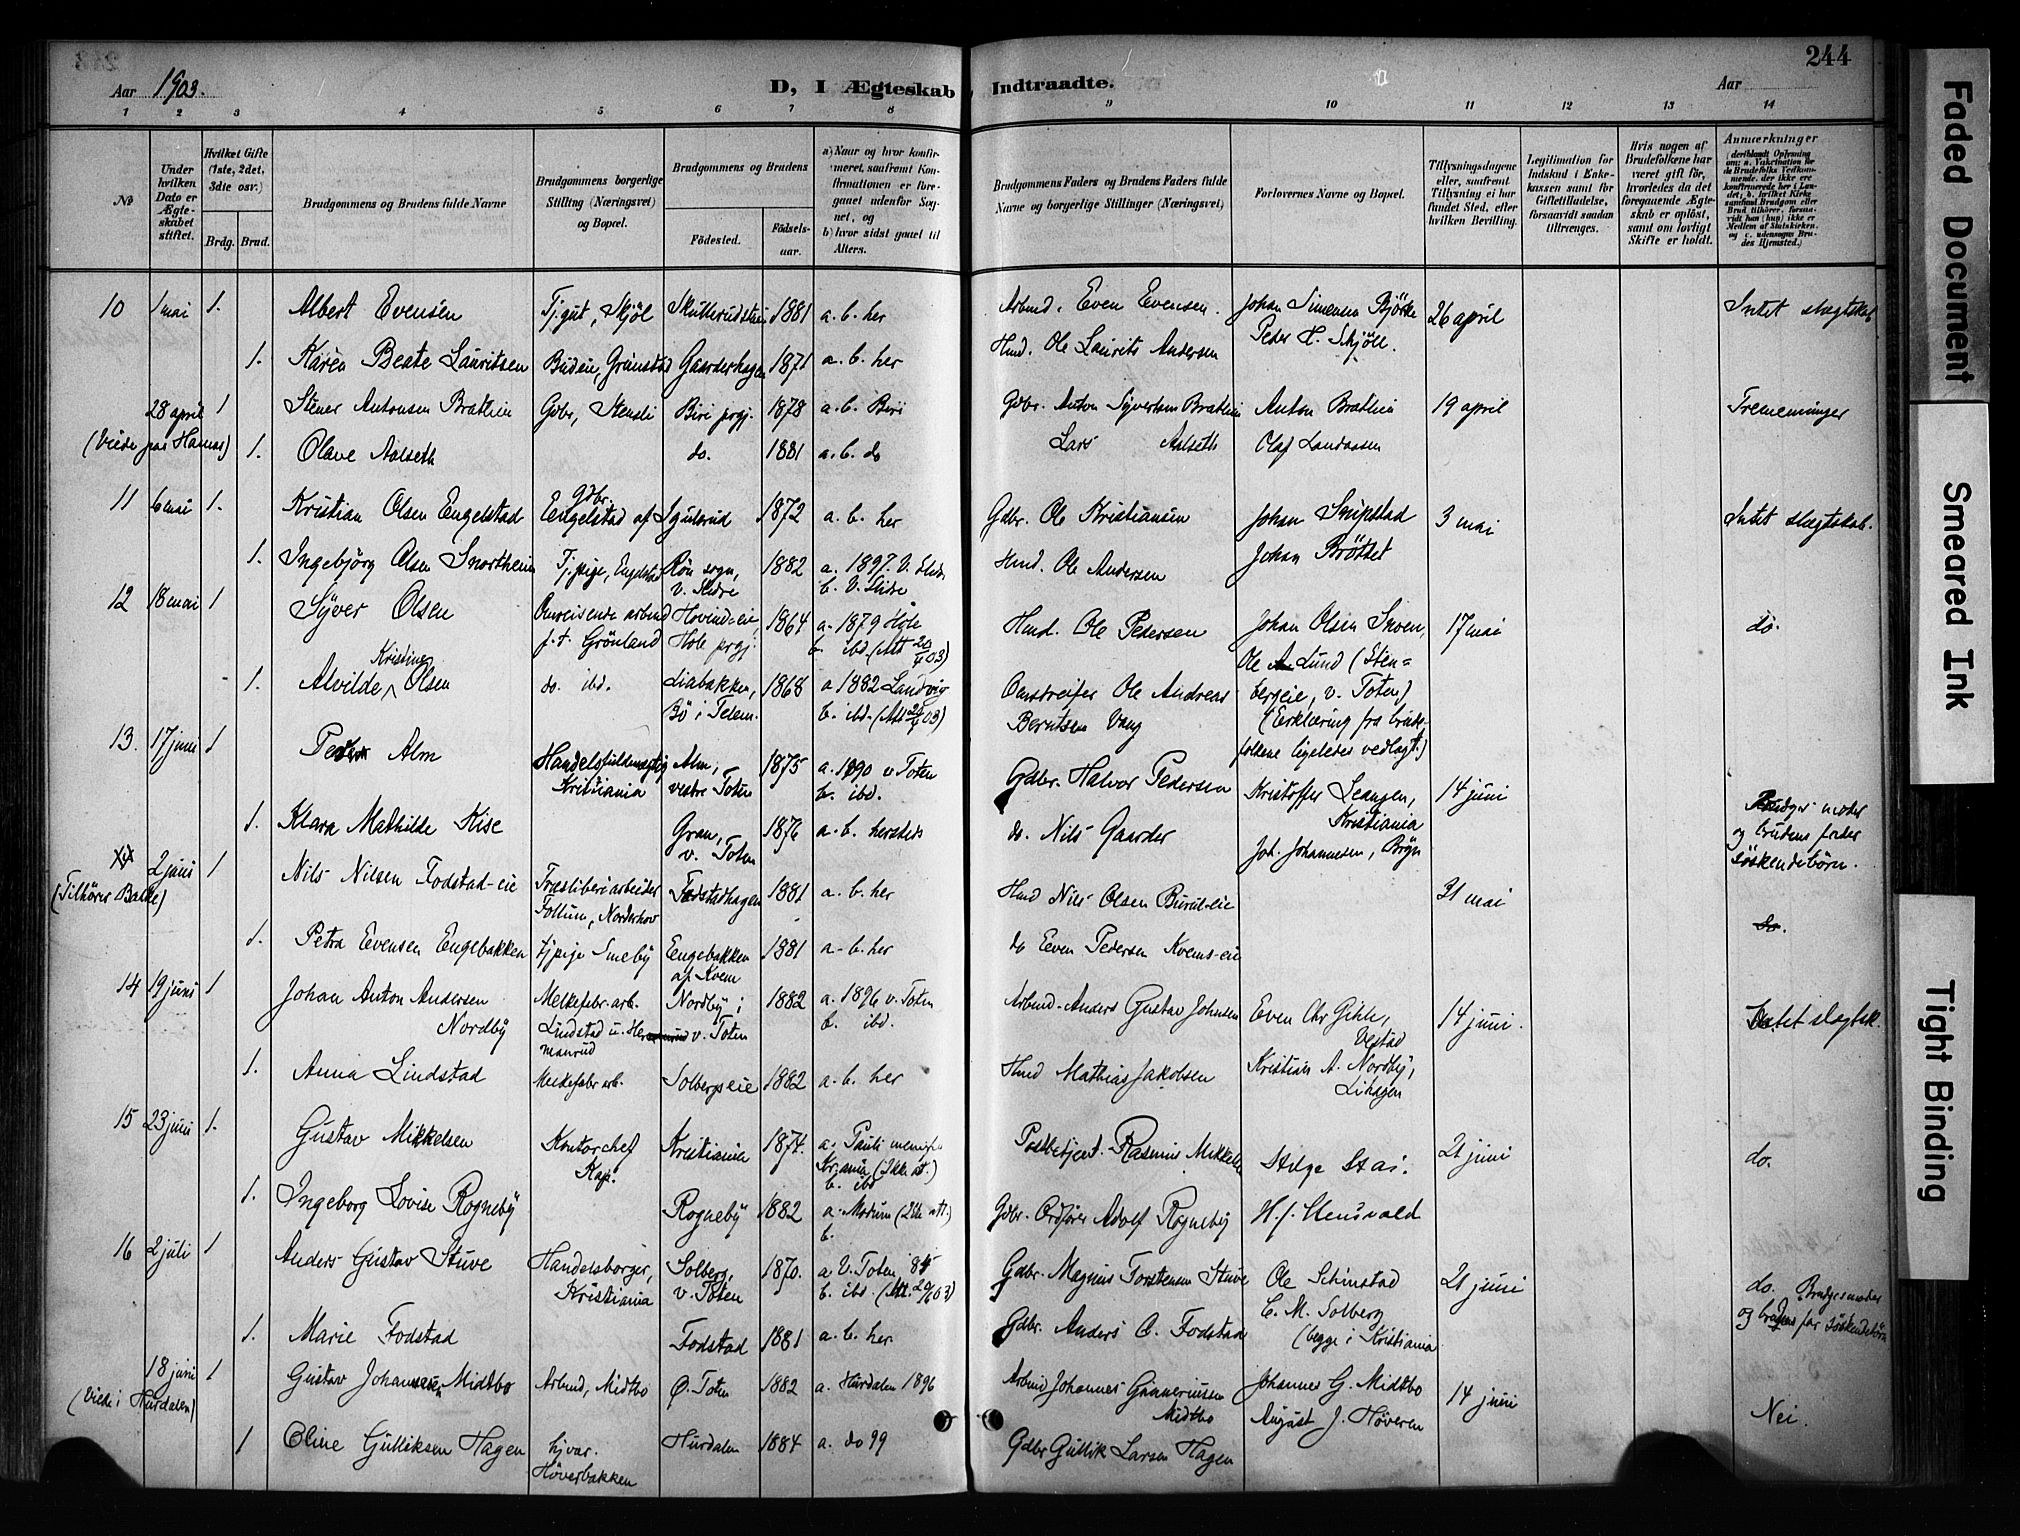 244
Aar 1903.
D, I Ægteskab Indtraadte.
Aar
1 2 3 4 5 6 7 8 9 10 11 12 13 14
No
Under hvilken Dato er Ægteskabet stiftet.
Hvilket Gifte (1ste, 2det, 3die osv.)
Brdg. Brud.
Brudgommens og Brudens fulde Navne
Brudgommens borgerlige Stilling (Næringsvei) og Bopæl.
Brudgommens og Brudens
Födested.
Födselsaar.
a) Naar og hvor konfirmeret, saafremt Konfirmationen er foregaaet udenfor Sognet, og
b) hvor sidst gaaet til Alters.
Brudgommens Faders og Brudens Faders fulde Navne og borgerlige Stillinger (Næringsvei)
Forlovernes Navne og Bopæl.
Tillysningsdagene eller, saafremt Tillysning ei har fundet Sted, efter hvilken Bevilling.
Legitimation for Indskud i Enkekassen samt for Giftetilladelse, forsaavidt saadan tiltrænges.
Hvis nogen af Brudefolkene har været gift för, hvorledes da det foregaaende Ægteskab er oplöst, samt om lovligt Skifte er holdt.
Anmærkninger
10 1 mai 1. Albert Evensen Tj.gut, Skjöl 1881 a. b. her Arbmd. Even Evensen. Johan Simensen Björke 26 april Intet slægtskab
Peder H. Skjöll.
1. Karen Beate Lauritsen Budeie, Grimstad Gaarderhagen 1871 a. b. her Hmd. Ole Laurits Andersen
28 april 1 Stener Antonsen Brathein Gdbr, Stensli Biri prgj. 1878 a. b. Biri Gdbr. Anton Syvertsen Brathein Anton Brathein 19 april Tremenninger
(Viede paa Hamar) 1. Olave Aalseth do. 1881 a. b. do Lars Aalseth Olaf Landaasen
11 6 mai 1. Kristian Olsen Engelstad Gdbr. Engelstad af 1872 a. b. her Gdbr. Ole Kristiansen Johan Snipstad 3 mai Intet slægtskab.
1. Ingebjörg Olsen Snortheim Tj.pige, Engelstad Rön sogn, V. Slidre 1882 a. 1897 V. Slidre b. V. Slidre Hmd. Ole Andersen Johan Bröttet
12 18 mai 1 Syver Olsen Omreisende arbmd f. t. Grönland Hovind-eie Hole prgj. 1864 a. 1879 Hole b. ibd. (Att 20/4 03) Hmd. Ole Pedersen Johan Olsen 17 mai do.
Ole Lund (Stenbergeie, v. Toten)
(Erklæring fra brudefolkene ligeledes vedlagt.)
1. Alvilde Kristine Olsen do. ibd. Liabakken, Bö i Telem. 1868 a 1882 Landvig b. ibd. Omstreifer Ole Andreas Berntsen Vang
13. 17 juni 1 Peder Alm Handelsfuldmægtig Kristiania Alm, vestre Toten 1875 a. 1890 v Toten b. ibd. Gdbr. Halvor Pedersen Kristoffer Leangen, Kristiania 14 juni
1. Klara Mathilde Kise Gran, v. Toten 1876 a. b. hersteds do. Nils Gaarder Joh. Johannesen, moder og brudens fader söskendebörn.
2 juni 1 Nils Nilsen Fodstad-eie Træsliberiarbeider Follum, Norderhov Fodstadhagen 1881 a. b. her Hmd Nils Olsen 31 mai
(Tilhörer Balke)
1. Petra Evensen Engebakken tjpige Smeby Engebakken af Kvem 1881 a. b. her do Even Pedersen Kvems-eie
14 19 juni 1 Johan Anton Andersen Nordby Melkefabr. arb. Lindstad Nordby i v. Toten 1882 a. 1896 v. Toten b. ibd. Arbmd. Anders Gustav Johnsen Even Chr Gihle, 14 juni. Intet slægtsk.
1. Anna Lindstad Melkefabr arb. Solbergseie 1882 a. b. her Hmd Mathias Jakobsen Kristian A. Nordby, Lihagen
15 23 juni 1. Gustav Mikkelsen Kontorchef Kap. Kristiania 1874. a. Pauli menighed Kr.ania (Ikke att.) b. ibd Postbetjent. Rasmus Mikkelsen Helge Stai. 21 juni do.
1. Ingeborg Lovise Rogneby Rogneby 1882 a. Modum (Ikke att.) b. Gdbr. Ordförer Adolf Rogneby
16 2 juli 1 Anders Gustav Stuve Handelsborger, Kristiania Solberg, v. Toten 1870. a V. Toten 85 b. ibd. (Att. 20/6 03) Gdbr. Magnus Torstensen Stuve Ole Schinstad 21 juni do. Brudg.s moder og brudens far söskendebörn
C. M. Solberg (begge i Kristiania
1. Marie Fodstad Fodstad 1881 a. b. her Gdbr. Anders C. Fodstad
18 juni 1 Gustav Johannesen Midtbo Arbmd, Midtbo Ø. Toten 1882 a. Hurdalen 1896 Arbmd Johannes Gunneriusen Midtbo Johannes G. Midtbo 14 juni Nei.
(Viede i Hurdalen) August J. Höveren
1 Oline Gulliksen Hagen hjvær. Höverbakken Hurdalen 1884 a. do 99 Gdbr Gullik Larsen Hagen
Faded Document
Smeared Ink
Tight Binding